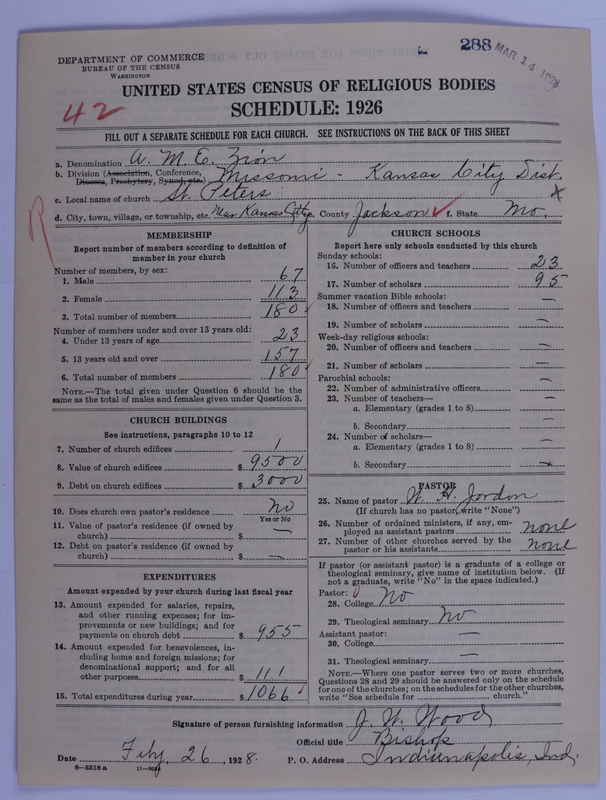 288 MAR 14 1928
DEPARTMENT OF COMMERCE
BUREAU OF THE CENSUS
WASHINGTON
UNITED STATES CENSUS OF RELIGIOUS BODIES
42
SCHEDULE: 1926
FILL OUT A SEPARATE SCHEDULE FOR EACH CHURCH. SEE INSTRUCTIONS ON THE BACK OF THIS SHEET
a. Denomination A. M. E. Zion
b. Division (Association, Conference, Diocese, Presbytery, Synod, etc.) Missouri - Kansas City Dist.
c. Local name of church St. Peters
d. City, town, village, or township, etc. Near Kansas City e. County Jackson f. State Mo.
R
MEMBERSHIP
Report number of members according to definition of
member in your church
Number of members, by sex:
1. Male 67
2. Female 113
3. Total number of members 180
Number of members under and over 13 years old:
4. Under 13 years of age 23
5. 13 years old and over 157
6. Total number of members 180
NOTE.—The total given under Question 6 should be the
same as the total of males and females given under Question 3.
CHURCH BUILDINGS
See instructions, paragraphs 10 to 12
7. Number of church edifices 1
8. Value of church edifices $ 9500
9. Debt on church edifices $ 3000
10. Does church own pastor's residence No
Yes or No
11. Value of pastor's residence (if owned by
church) $ —
12. Debt on pastor's residence (if owned by
church) $ —
EXPENDITURES
Amount expended by your church during last fiscal year
13. Amount expended for salaries, repairs,
and other running expenses; for im-
provements or new buildings; and for
payments on church debt $ 955
14. Amount expended for benevolences, in-
cluding home and foreign missions; for
denominational support; and for all
other purposes $ 111
15. Total expenditures during year $ 1066
CHURCH SCHOOLS
Report here only schools conducted by this church
Sunday schools:
16. Number of officers and teachers 23
17. Number of scholars 95
Summer vacation Bible schools:
18. Number of officers and teachers —
19. Number of scholars —
Week-day religious schools:
20. Number of officers and teachers —
21. Number of scholars —
Parochial schools:
22. Number of administrative officers —
23. Number of teachers—
a. Elementary (grades 1 to 8) —
b. Secondary —
24. Number of scholars—
a. Elementary (grades 1 to 8) —
b. Secondary —
PASTOR
25. Name of pastor W. H. Jordon
(If church has no pastor, write "None")
26. Number of ordained ministers, if any, em-
ployed as assistant pastors none
27. Number of other churches served by the
pastor or his assistants none
If pastor (or assistant pastor) is a graduate of a college or
theological seminary, give name of institution below. (If
not a graduate, write "No" in the space indicated.)
Pastor:
28. College No
29. Theological seminary No
Assistant pastor:
30. College —
31. Theological seminary —
NOTE.—Where one pastor serves two or more churches,
Questions 28 and 29 should be answered only on the schedule
for one of the churches; on the schedules for the other churches,
write "See schedule for church."
Signature of person furnishing information J. W. Wood
Official title Bishop
Date Feby. 26, 1928. P. O. Address Indianapolis, Ind.
8—5518 a